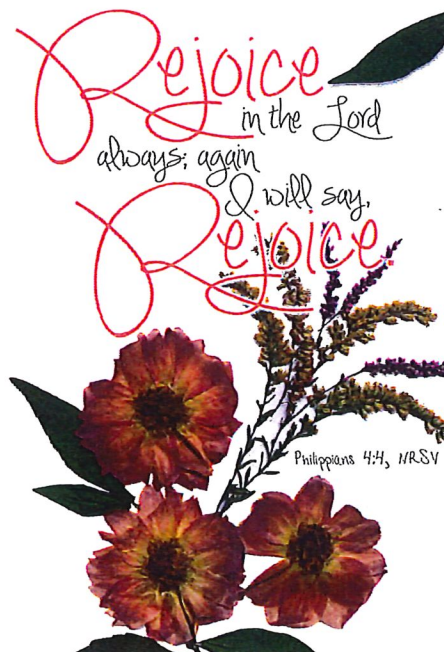 Rejoice
in the Lord
always; again
I will say,
Rejoice.
Philippians 4:4, NRSV